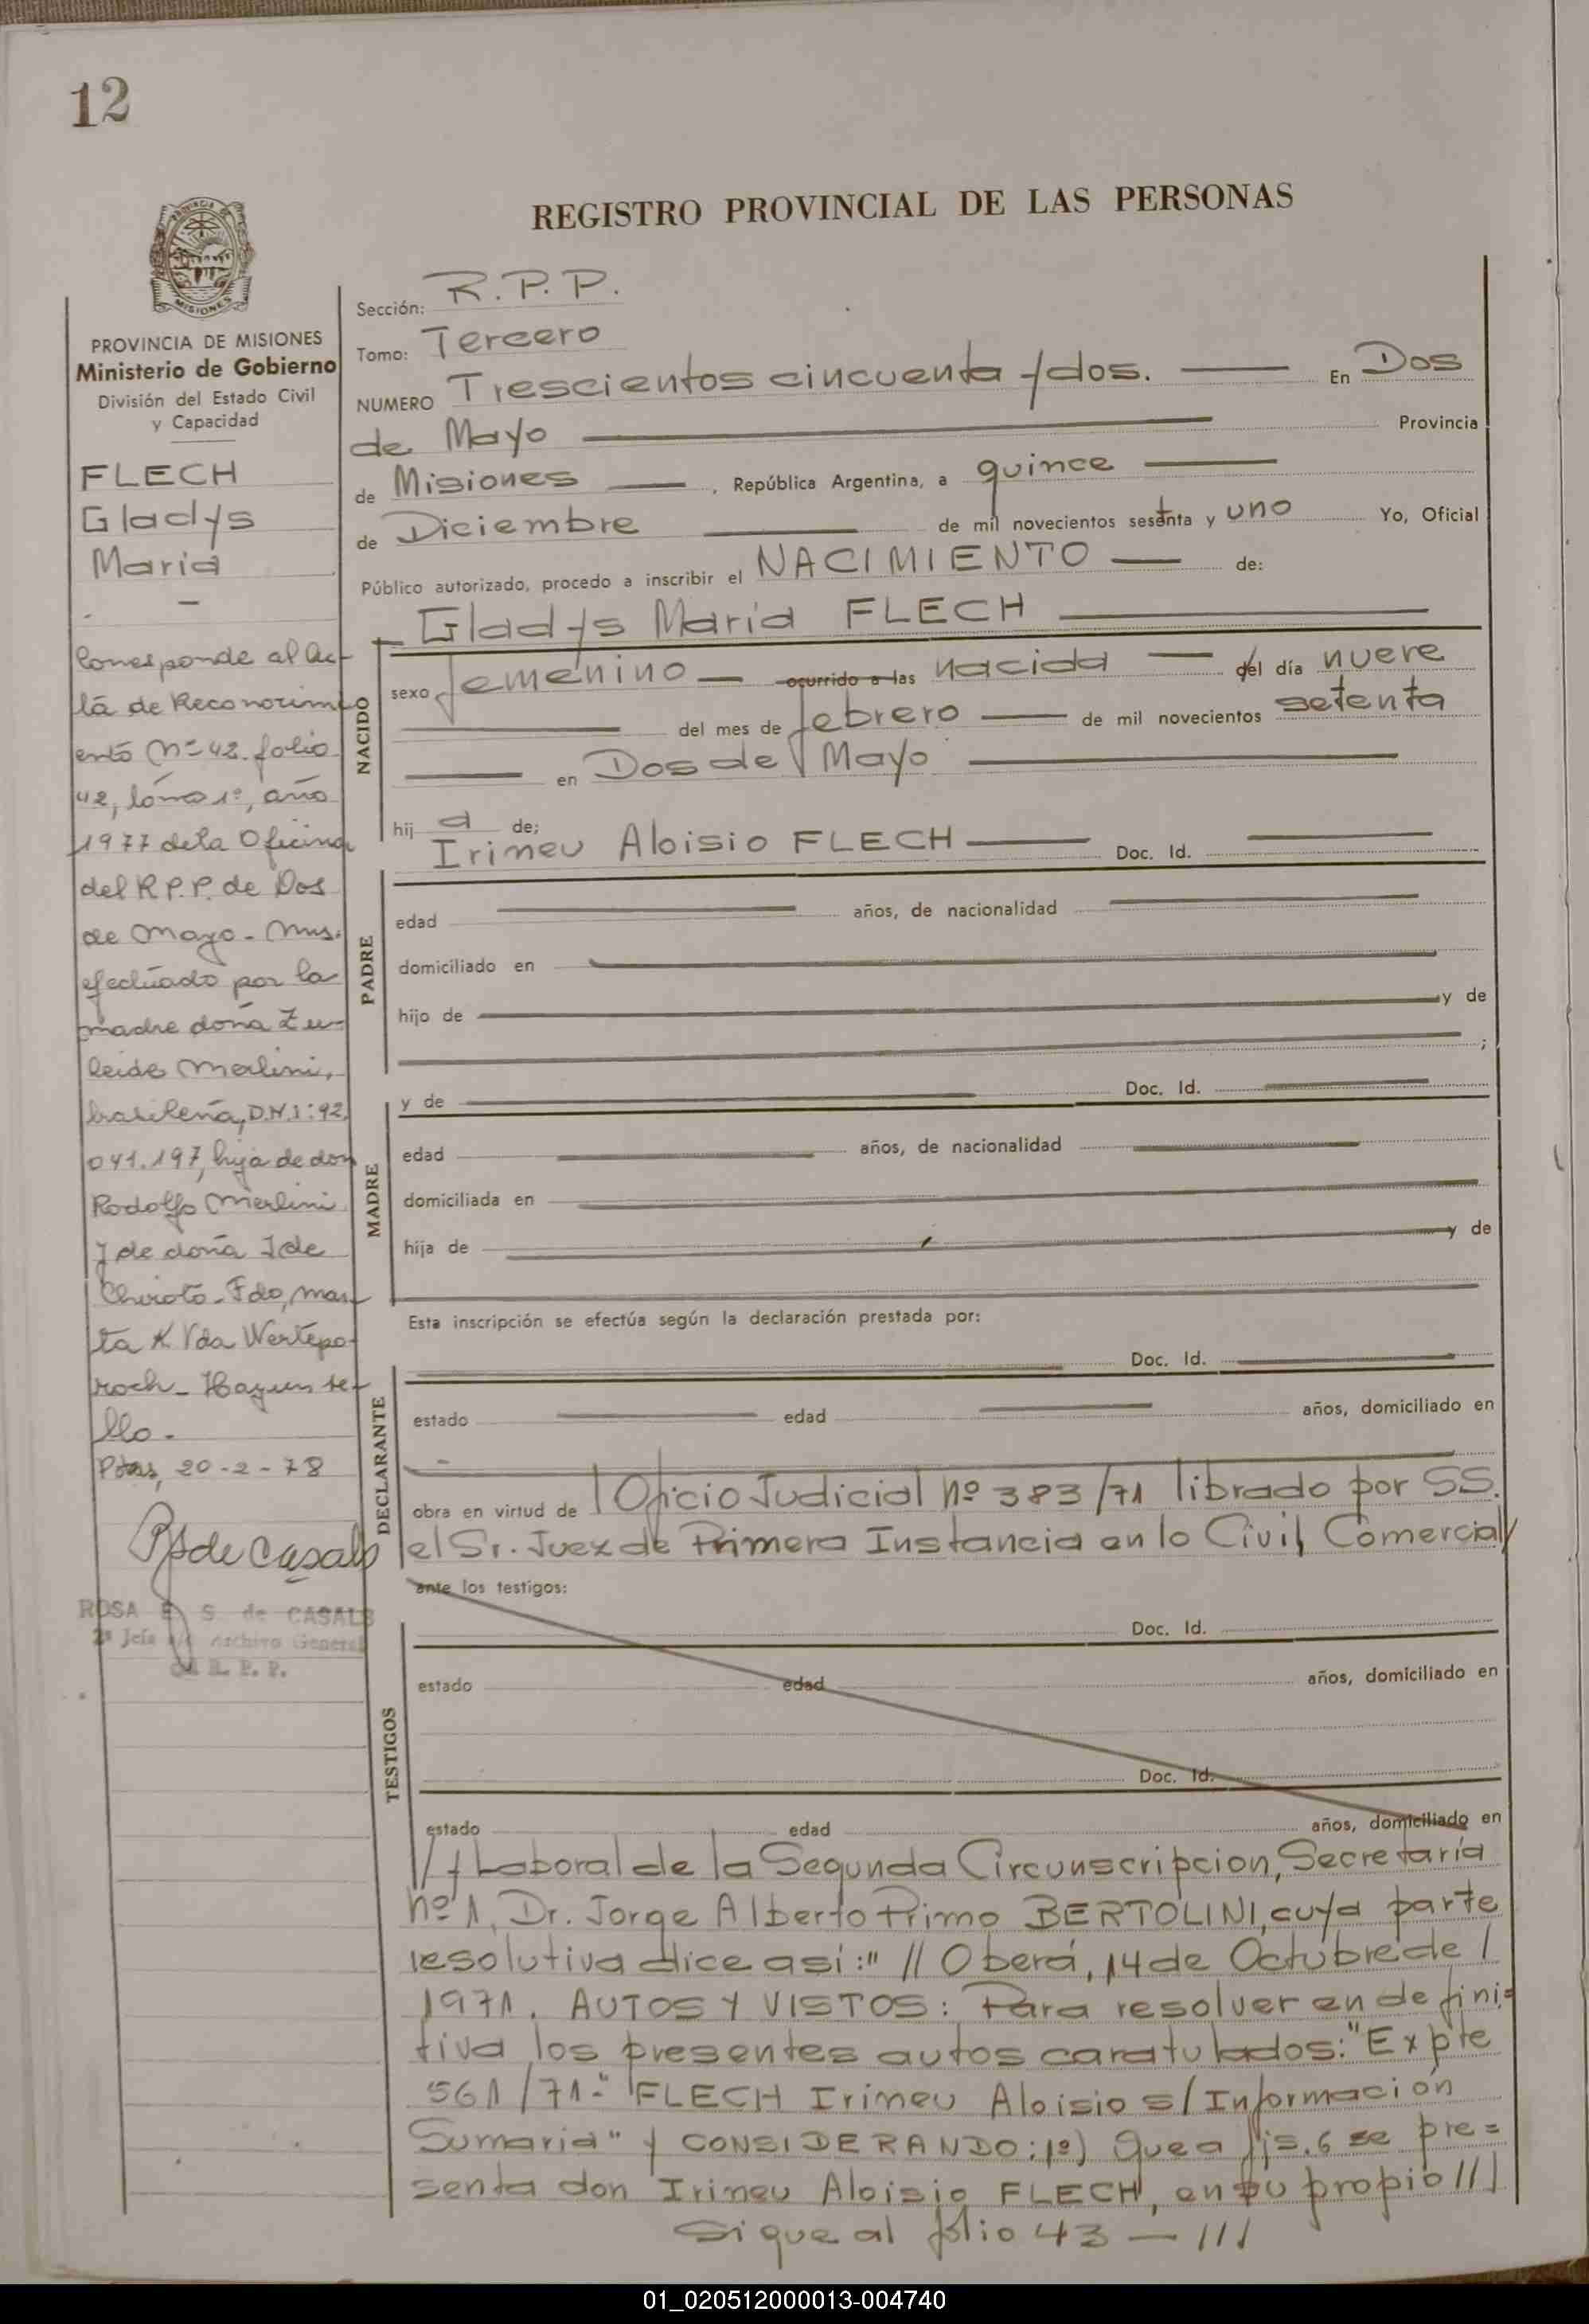 12
REGISTRO PROVINCIAL DE LAS PERSONAS
MISIONES
PROVINCIA DE MISIONES
Ministerio de Gobierno
División del Estado Civil
y Capacidad
FLECH
Gladys
María
Corresponde al Ac-
ta de Reconocimi
ento Nº 42. folio
42, tomo 1º, año
1977 de la Oficina
del R.P.P. de Dos
de Mayo - Mns.
efectuado por la
madre doña Zu-
leide Merlini,
brasileña, D.N.I: 92.
041.197, hija de don
Rodolfo Merlini
y de doña Ide
Chiroto - Fdo, Mar-
ta K. Vda Wertepo-
roch - Hay un se-
llo.
Pdas, 20-2-78
ROSA E. S. de CASALS
2ª Jefa a/c Archivo General
del R. P. P.
Sección: R.P.P.
Tomo: Tercero
NUMERO Trescientos cincuenta y dos. En Dos
de Mayo Provincia
de Misiones , República Argentina, a quince
de Diciembre de mil novecientos setenta y uno Yo, Oficial
Público autorizado, procedo a inscribir el NACIMIENTO de:
Gladys María FLECH
NACIDO
sexo femenino ocurrido a las nacida del día nueve
del mes de febrero de mil novecientos setenta
en Dos de Mayo
hij a de:
Irineu Aloisio FLECH Doc. Id.
PADRE
edad años, de nacionalidad
domiciliado en
hijo de y de
;
y de Doc. Id.
MADRE
edad años, de nacionalidad
domiciliada en
hija de y de
Esta inscripción se efectúa según la declaración prestada por:
Doc. Id.
DECLARANTE
estado edad años, domiciliado en
obra en virtud de Oficio Judicial nº 383/71 librado por SS.
el Sr. Juez de Primera Instancia en lo Civil, Comercial/
ante los testigos:
Doc. Id.
TESTIGOS
estado edad años, domiciliado en
Doc. Id.
estado edad años, domiciliado en
// y Laboral de la Segunda Circunscripcion, Secretaría
nº 1, Dr. Jorge Alberto Primo BERTOLINI, cuya parte
resolutiva dice así:" // Oberá, 14 de Octubre de /
1971. AUTOS Y VISTOS: Para resolver en defini=
tiva los presentes autos caratulados: "Expte
561/71-" FLECH Irineu Aloisio s/Información
Sumaria" y CONSIDERANDO: 1º) Que a fjs. 6 se pre=
senta don Irineu Aloisio FLECH, en su propio///
Sigue al folio 43 — ///
01_020512000013-004740